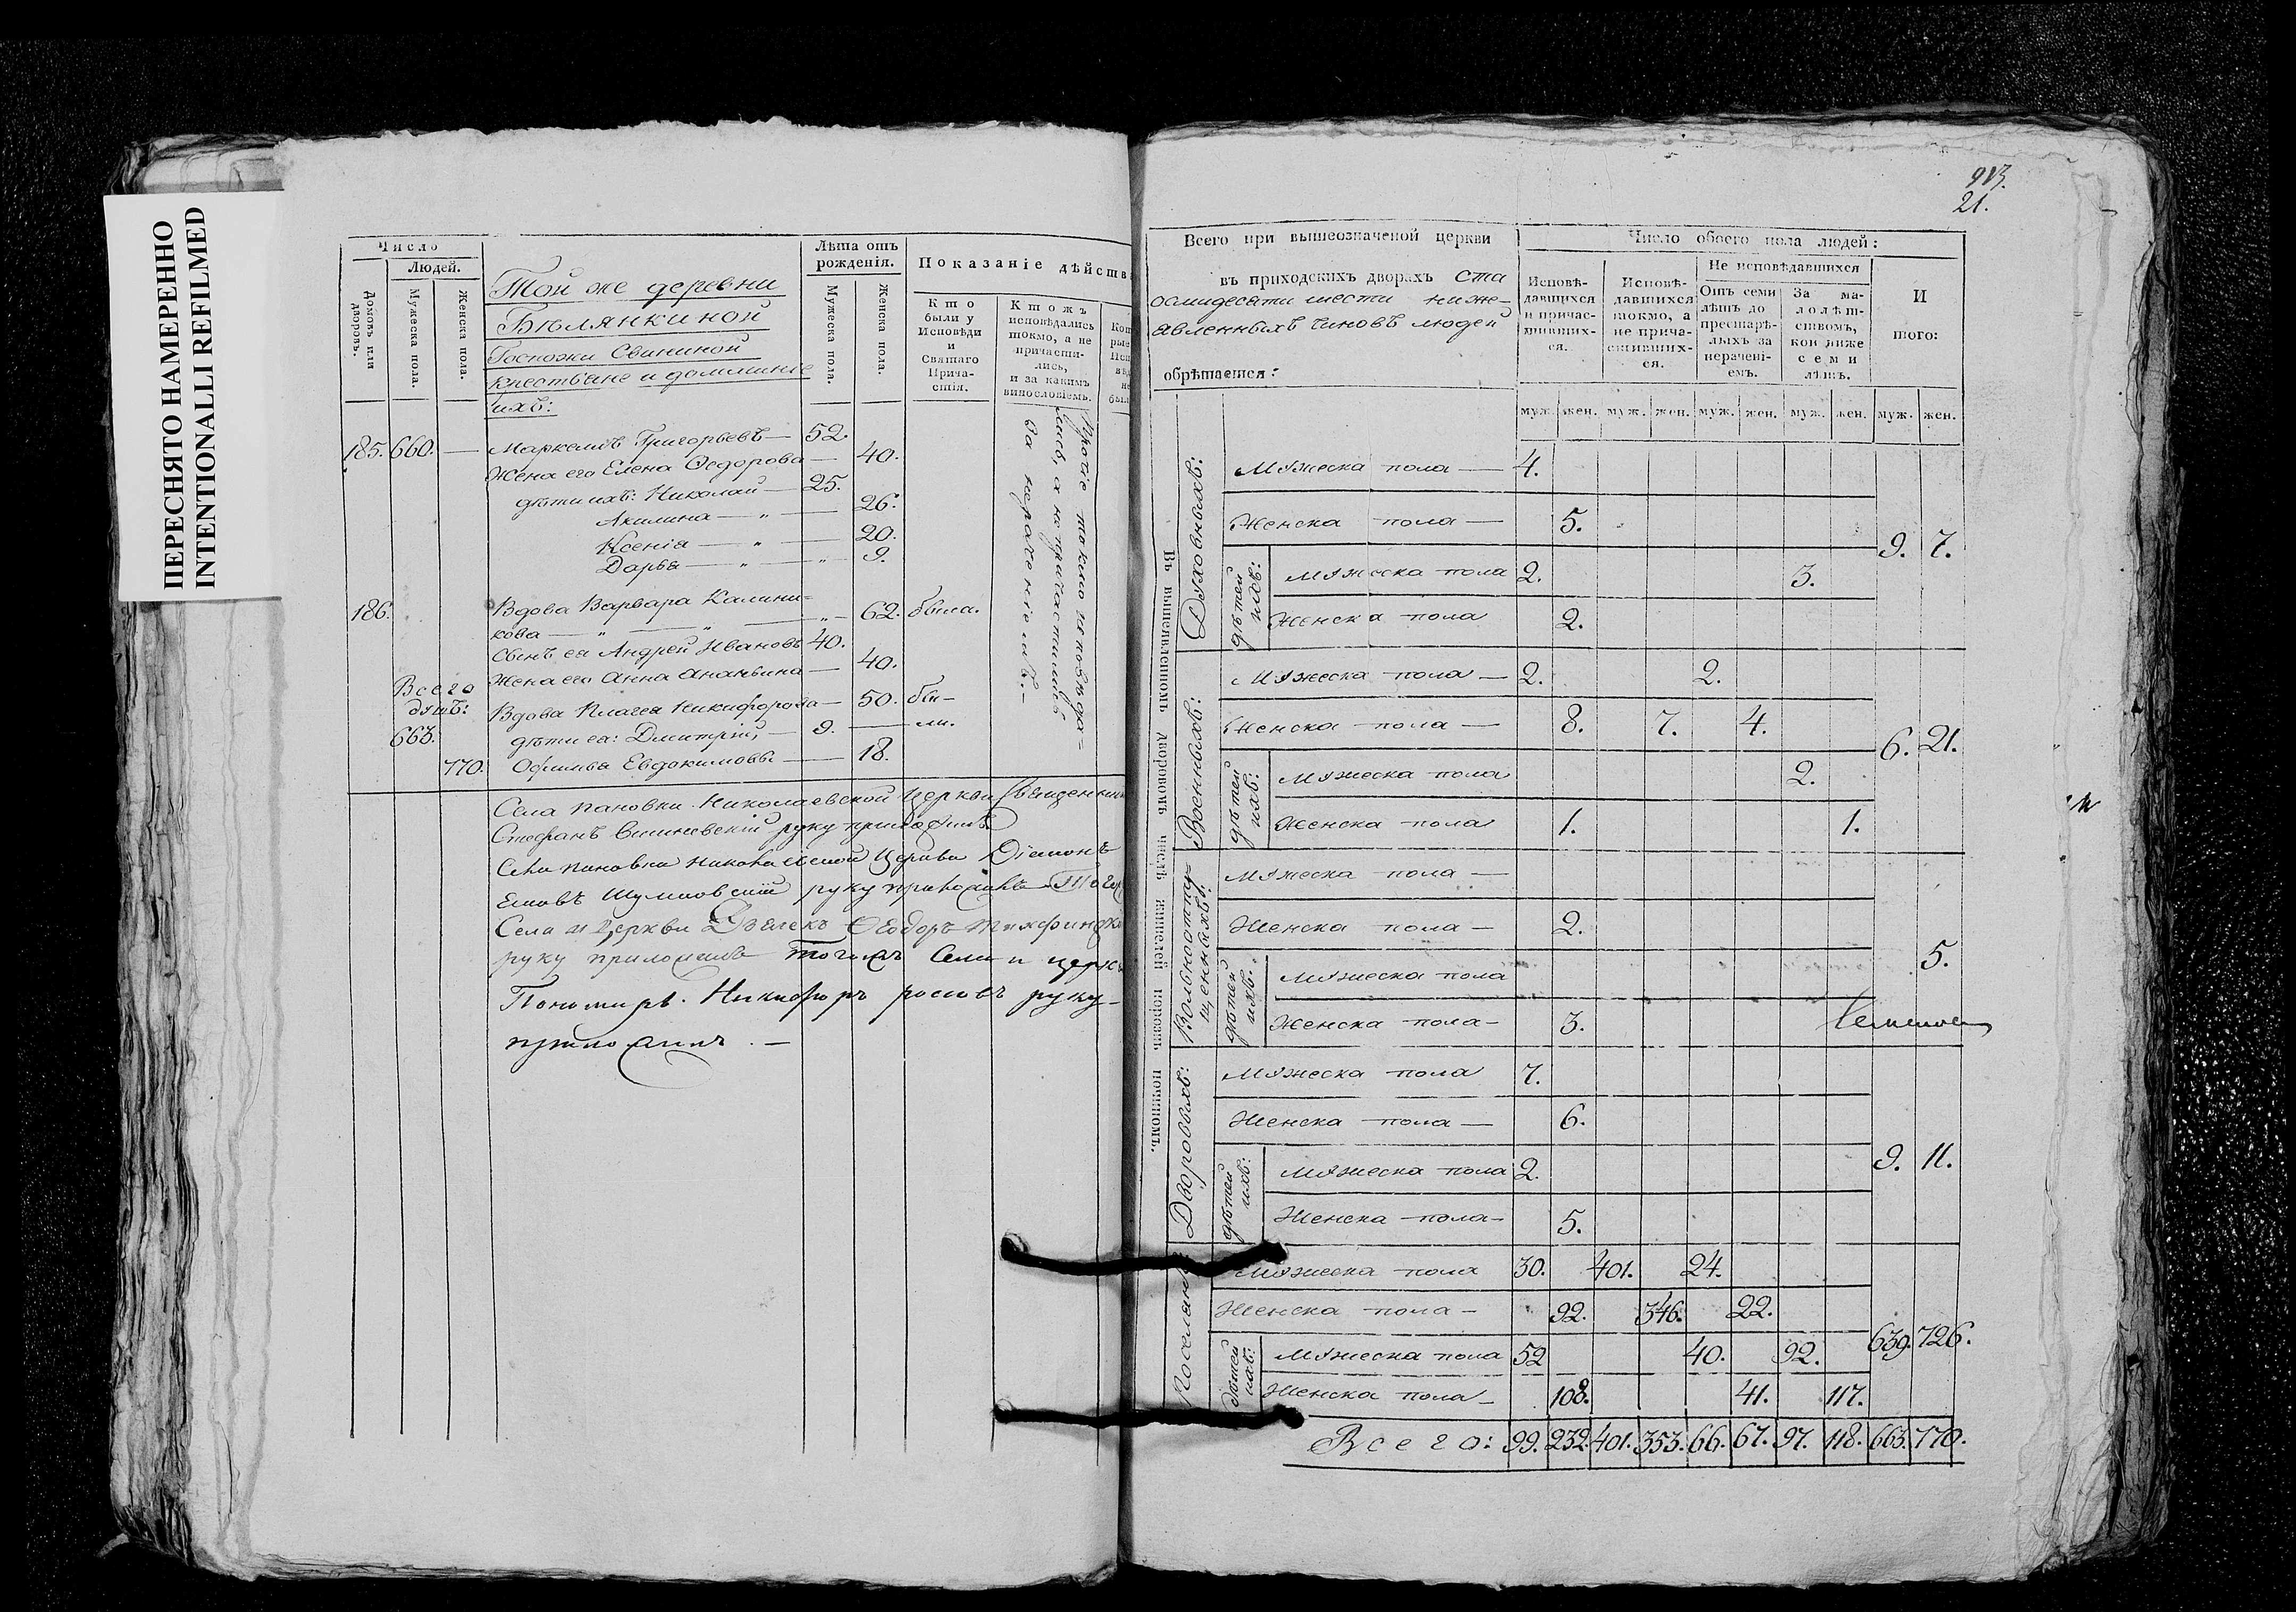 ПЕРЕСНЯТО НАМЕРЕННО
INTENTIONALLI REFILMED
Число
Людей.
Домовъ или дворовъ.
Мужеска пола.
Женска пола.
Той же деревни
Бѣлянкиной
Госпожи Свининой
крестьяне и домашніе
ихъ:
Лѣта отъ рожденія.
Мужеска пола.
Женска пола.
Показаніе дѣйств
Кто были у Исповѣди и Святаго Причастія.
Ктожъ исповѣдались токмо, а не причастились, и за какимъ винословіемъ.
185. 660. — Маркеллъ Григорьевъ — 52.
Жена его Елена Ѳедорова — 40.
дѣти ихъ: Николай — 25.
Акилина — „ — 26.
Ксенія — „ — 20.
Дарья — „ — „ 9.
Прочіе токмо исповѣдались, а не причастились за нераченіемъ. —
186. Вдова Варвара Калини=
кова — „ — „ — „ — 62. была.
Сынъ ея Андрей Ивановъ 40.
Жена его Анна Ананьина — 40.
Вдова Пелагея Никифорова — 50. бы—
дѣти ея: Дмитрій, — 9. — ли.
Офимья Евдокимовы — 18.
Всего
душъ:
663.
770.
Села Пановки Николаевской Церкви Священник
Стефанъ руку приложилъ
Села Пановки Николаевской Церкви Діаконъ
руку приложилъ Тогож
Села и Церкви Дьячекъ Ѳеодоръ
руку приложилъ Тогожъ Села и церкви
Пономарь Никифоръ руку—
приложилъ. —
913.
21.
Всего при вышеозначеной церкви
въ приходскихъ дворахъ Ста
осмидесяти шести ниже—
явленныхъ чиновъ людей
обрѣтается:
Число обоего пола людей:
Исповѣдавшихся и причастившихся.
Исповѣдавшихся токмо, а не причастившихся.
Не исповѣдавшихся
Отъ семи лѣтъ до престарѣлыхъ за нераченіемъ.
За малолѣтствомъ, кои ниже семи лѣтъ.
И того:
муж. жен. муж. жен. муж. жен. муж. жен. муж. жен.
Въ вышеявленномъ дворовомъ числѣ жителей порознь починомъ.
Духовныхъ:
Мужеска пола — 4.
Женска пола — 5.
9. 7.
дѣтей ихъ:
Мужеска пола 2. 3.
Женска пола 2.
Военныхъ:
Мужеска пола — 2. 2.
Женска пола — 8. 7. 4.
6. 21.
дѣтей ихъ:
Мужеска пола 2.
Женска пола 1. 1.
Вольноотпущенныхъ:
Мужеска пола —
Женска пола — 2.
5.
дѣтей ихъ:
Мужеска пола
Женска пола — 3.
Дворовыхъ:
Мужеска пола 7.
Женска пола — 6.
9. 11.
дѣтей ихъ:
Мужеска пола 2.
Женска пола — 5.
Поселянъ:
Мужеска пола 30. 401. 24.
Женска пола — 92. 346. 22.
639. 726.
дѣтей ихъ:
Мужеска пола 52 40. 92.
Женска пола — 108. 41. 117.
Всего: 99. 232. 401. 353. 66. 67. 97. 118. 663. 770.